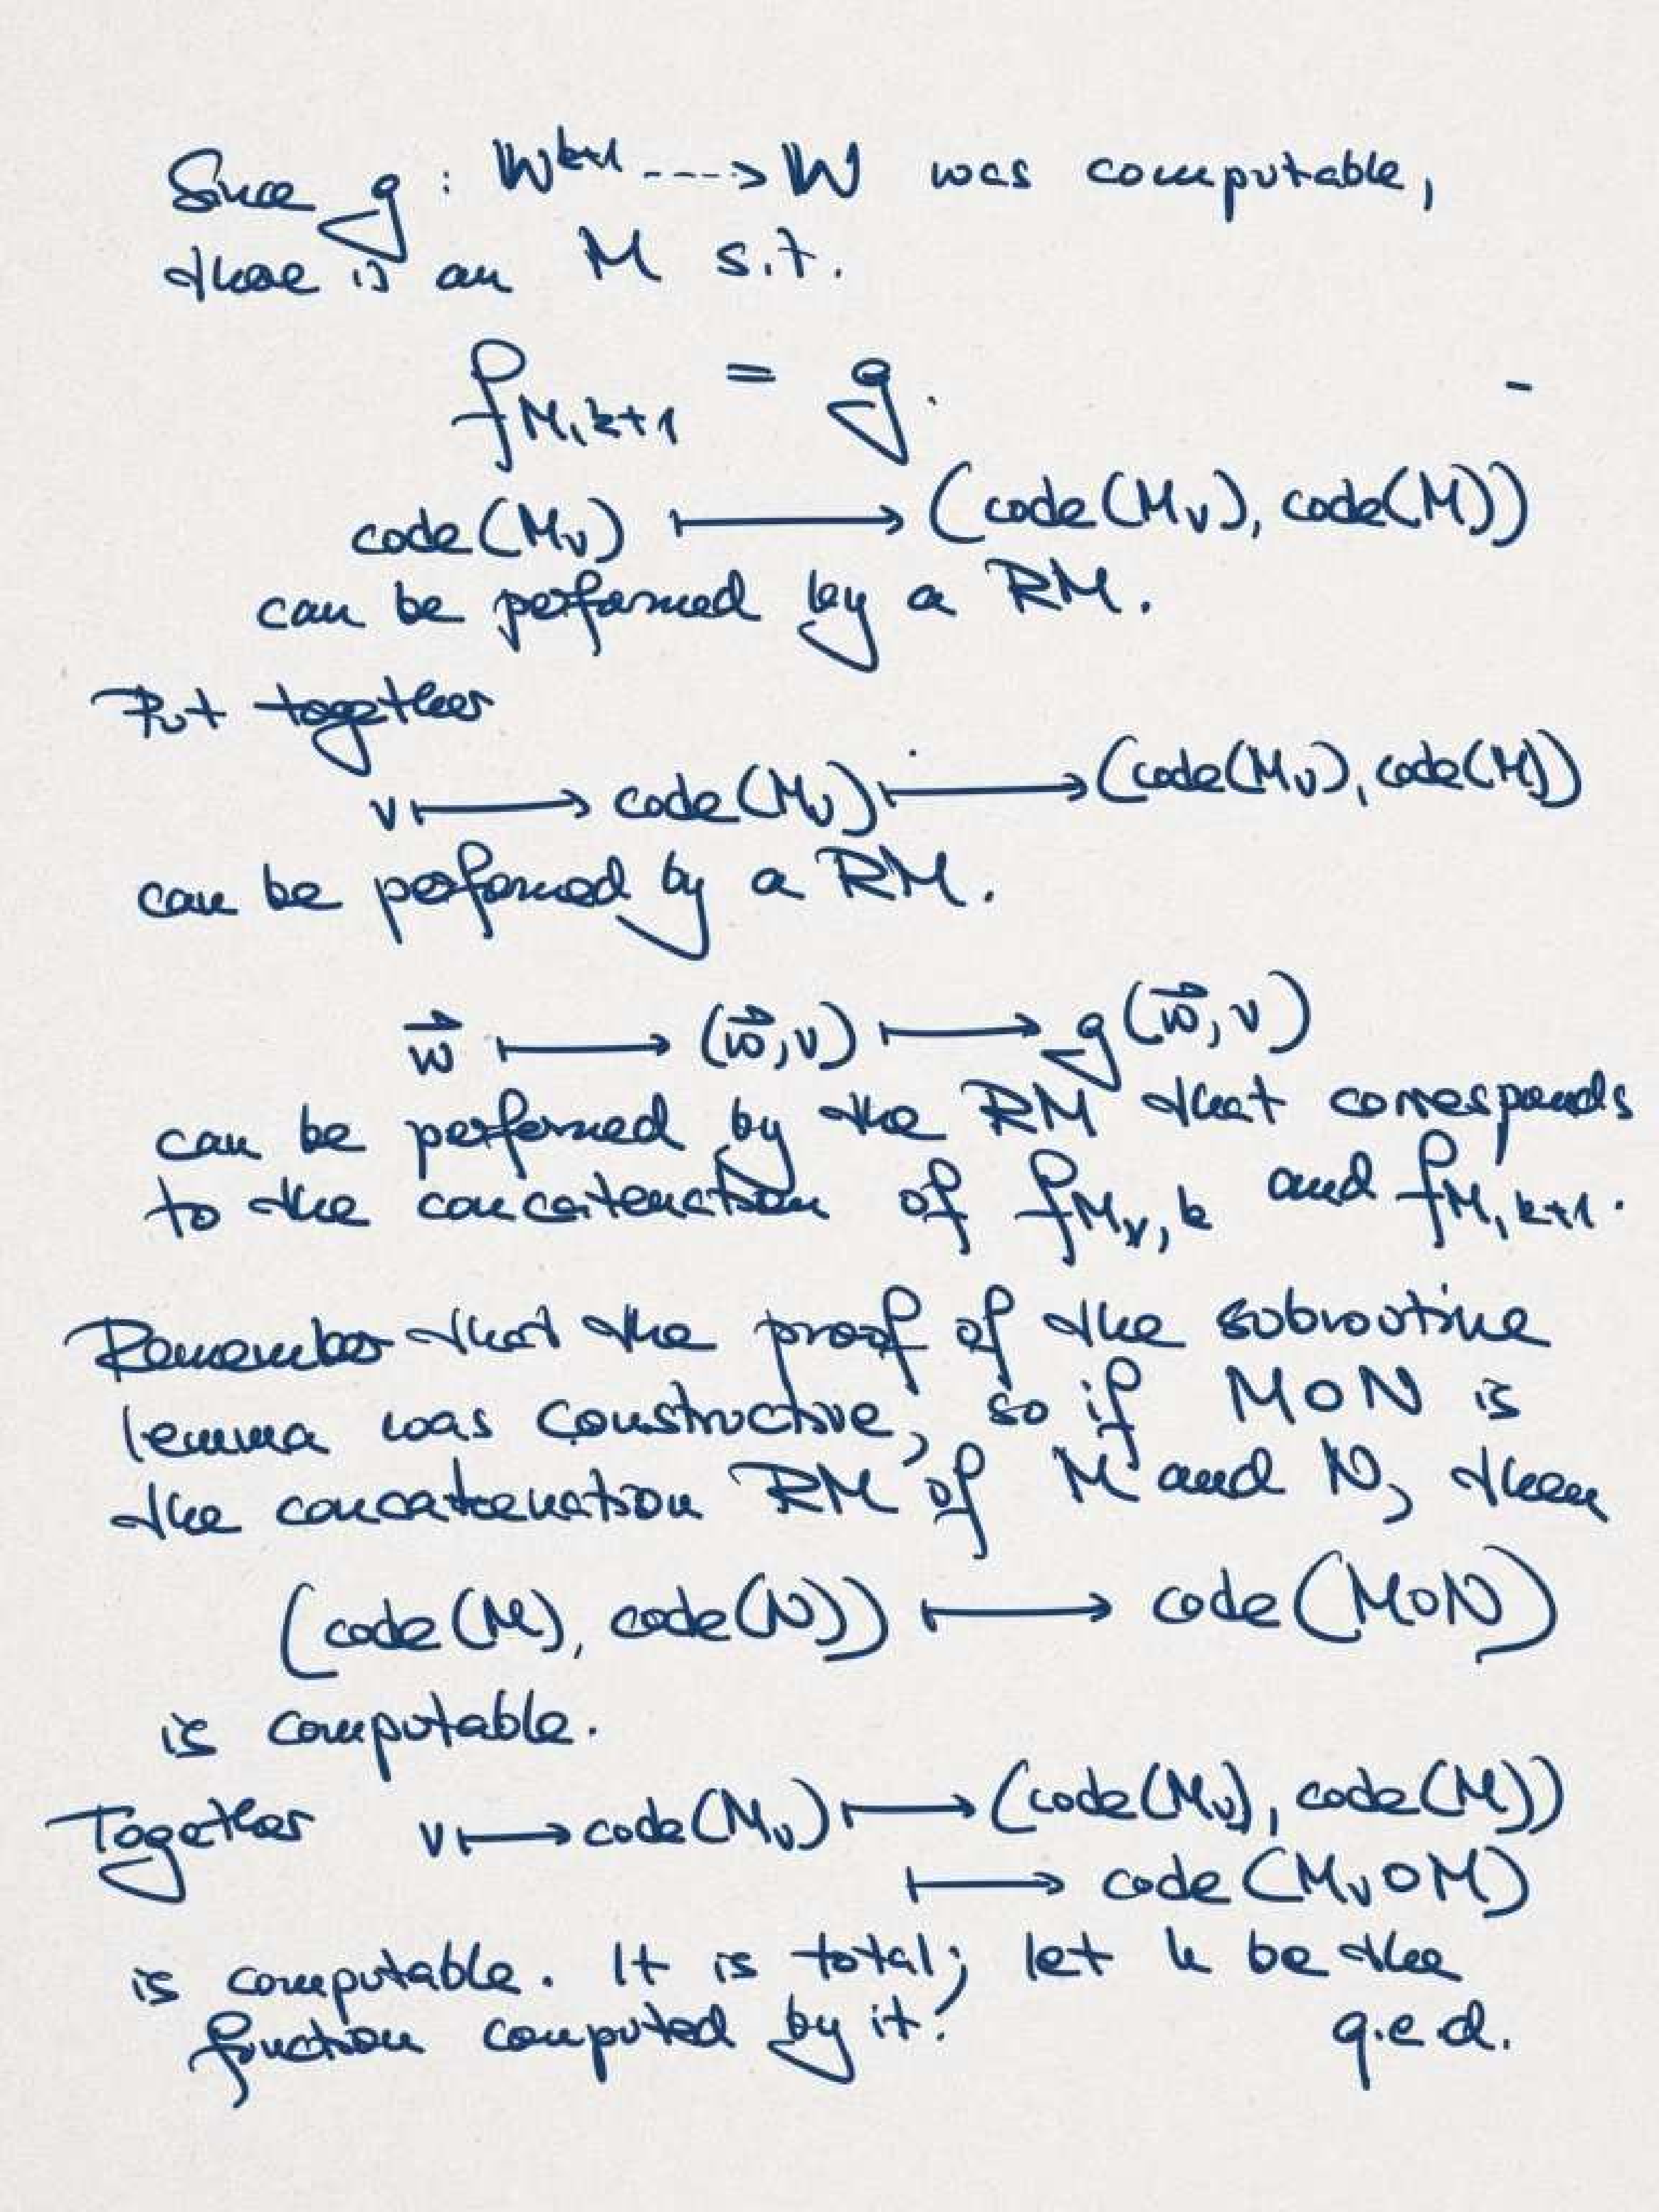 Since g : 𝕎ᵏ⁺¹ ----> 𝕎 was computable,
there is an M s.t.
f_{M,k+1} = g.
code(M_v) ⟼ (code(M_v), code(M))
can be performed by a RM.
Put together
v ⟼ code(M_v) ⟼ (code(M_v), code(M))
can be performed by a RM.
w⃗ ⟼ (w⃗, v) ⟼ g(w⃗, v)
can be performed by the RM that corresponds
to the concatenation of f_{M_v,k} and f_{M,k+1}.
Remember that the proof of the subroutine
lemma was constructive, so if M∘N is
the concatenation RM of M and N, then
(code(M), code(N)) ⟼ code(M∘N)
is computable.
Together v ⟼ code(M_v) ⟼ (code(M_v), code(M))
⟼ code(M_v∘M)
is computable. It is total; let h be the
function computed by it. q.e.d.